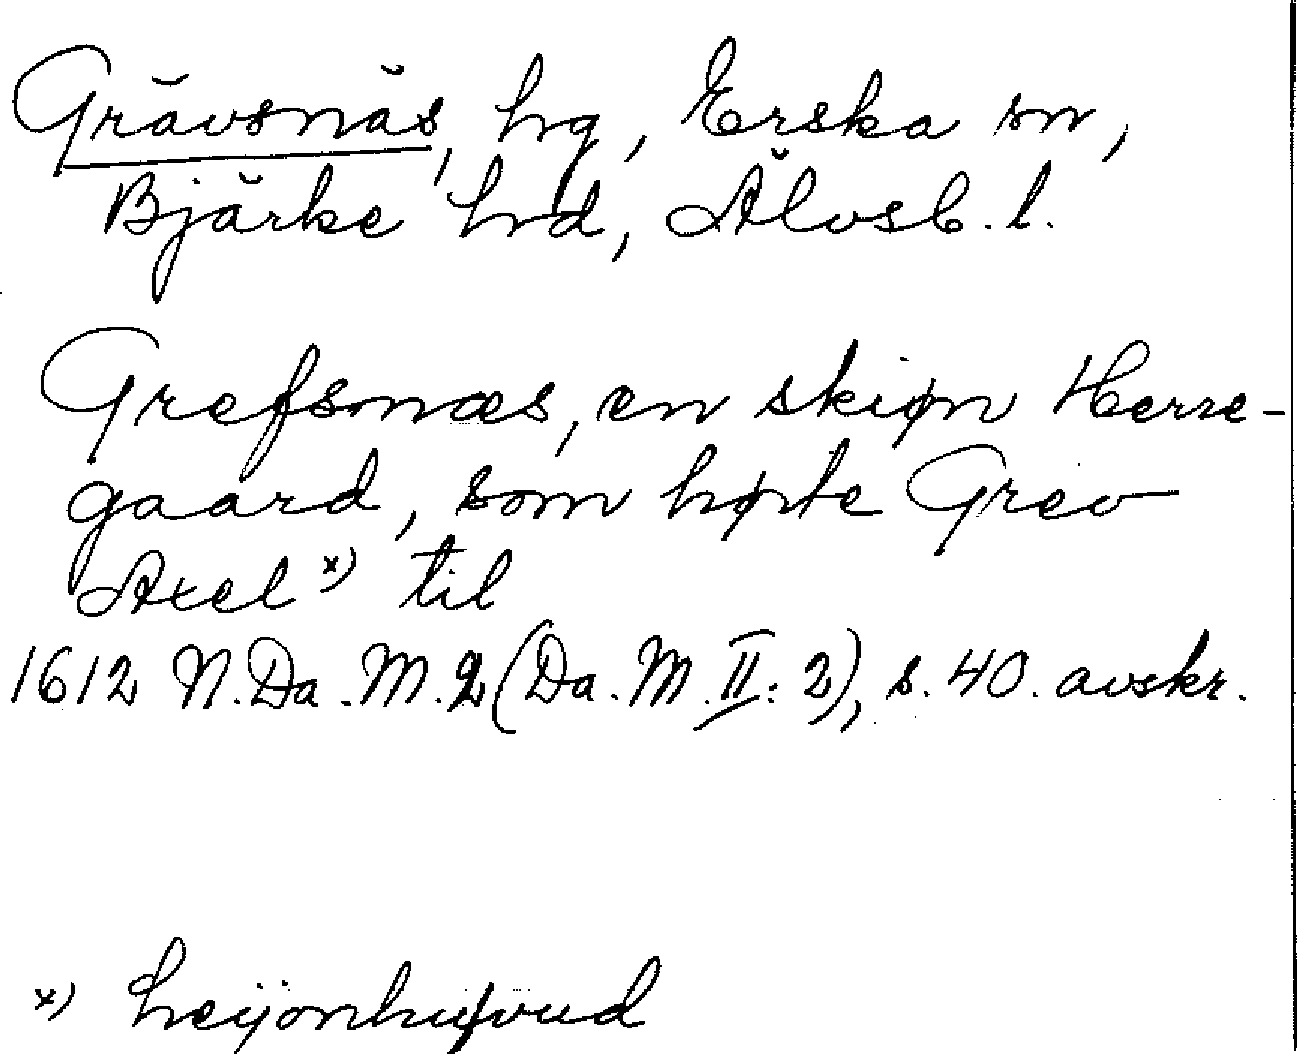 Grävsnäs, hg, Erska sn,
Bjärke hd, Älvsb. l.
Grefsnæs, en skiøn Herre-
gaard, som hørte Grev
Axel x) til
1612 N. Da. M. 2 (Da. M. II: 2), s. 40. avskr.
x) Leijonhufvud